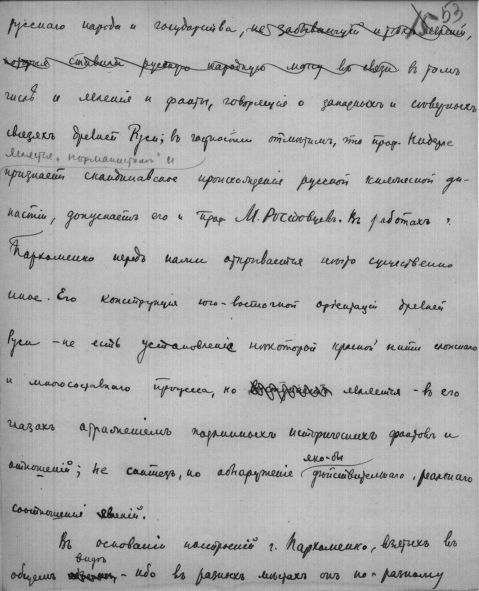 53
русскаго народа и государства, не забывающей и тѣхъ явленій,
которыя ставили русскую народную массу въ связи въ томъ
числѣ и явленія и факты, говорящіе о западныхъ и сѣверныхъ
связяхъ древней Руси; въ частности отмѣтимъ, что проф. Нидерле
является "норманистомъ" и
признаетъ скандинавское происхожденіе русской княжеской ди-
настіи, допускаетъ его и проф. М. Ростовцевъ. Въ работахъ г.
Пархоменко передъ нами открывается нѣчто существенно
иное. Его конструкція юго-восточной оріентаціи древней
Руси - не есть установленіе нѣкоторой красной нити сложнаго
и многосоставнаго процесса, но является - въ его
глазахъ отраженіемъ подлинныхъ историческихъ фактовъ и
отношеній; не синтезъ, но обнаруженіе
яко-бы
дѣйствительнаго, реальнаго
соотношенія явленій.
Въ основаніи построеній г. Пархоменко, взятыхъ въ
видѣ
общемъ - ибо въ разныхъ мѣстахъ онъ по-разному